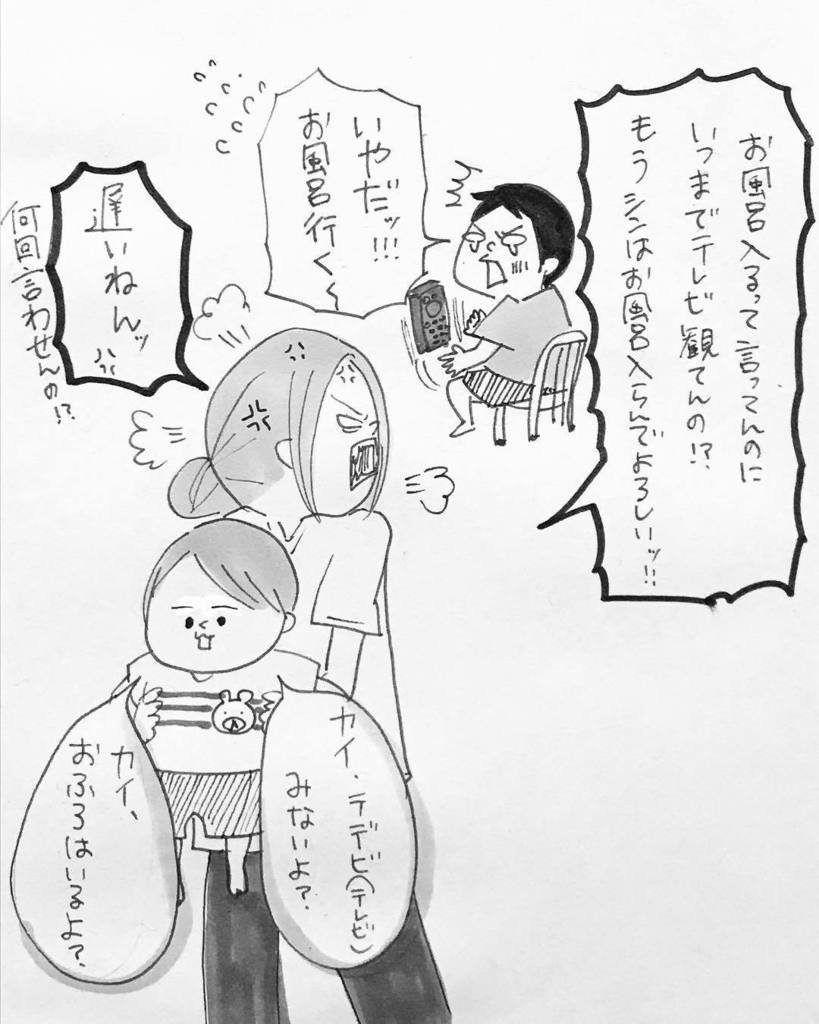 お風呂入るって言ってんのに
いつまでテレビ観てんの!?
もうシンはお風呂入らんでよろしいッ!!
いやだッ!!!
お風呂行く〜
遅いねんッ
何回言わせんの!?
カイ、テデビ(テレビ)
みないよ?
カイ、
おふろはいるよ?